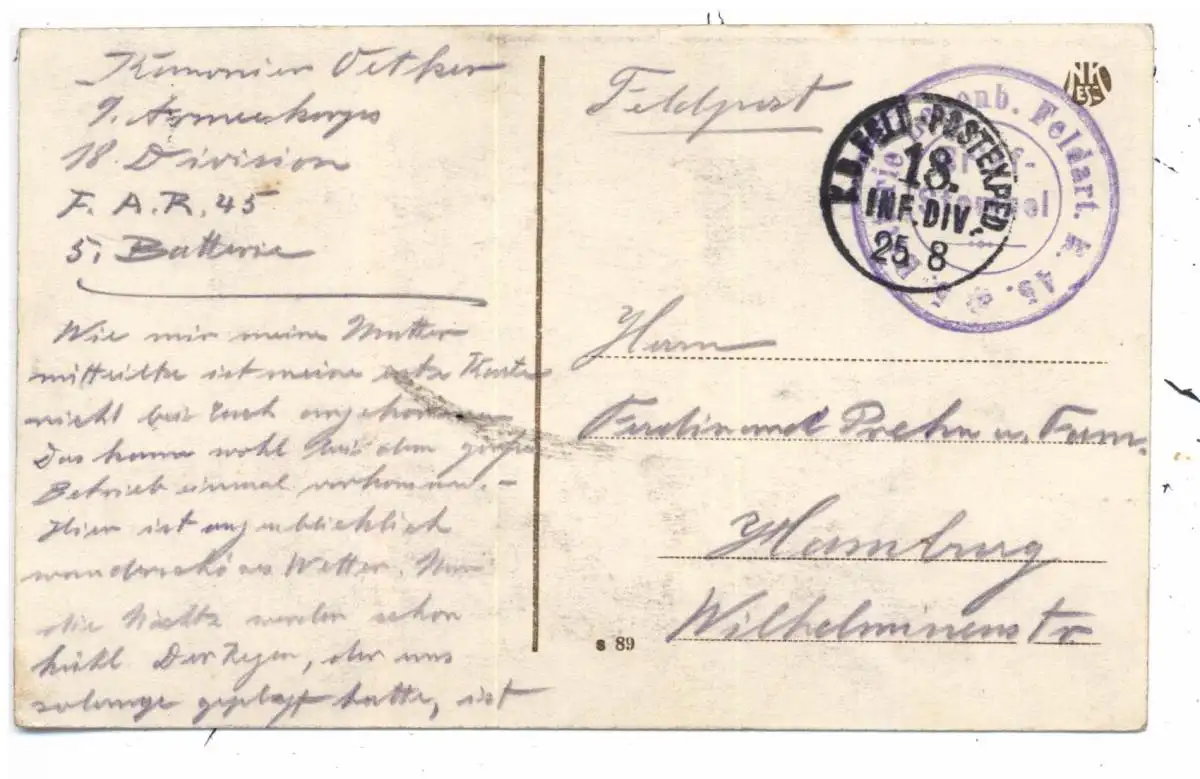 Kanonier Oetker
9. Armeekorps
18. Division
F. A. R. 45
5. Batterie
Wie mir meine Mutter
mitteilte ist meine Karte
nicht bei Euch angekommen
Das kann wohl bei dem großen
Betrieb einmal vorkommen.-
Hier ist augenblicklich
wunderschönes Wetter. Nur
die Nächte werden schon
kühl. Der Regen, der uns
solange geplagt hatte, ist
Feldpost
NK
ESC
K.D. FELD-POSTEXPED
18.
INF. DIV.
25 8
Feldart. R. 45.
Herrn
Ferdinand Prehn u. Fam.
Hamburg
Wilhelminenstr
s 89